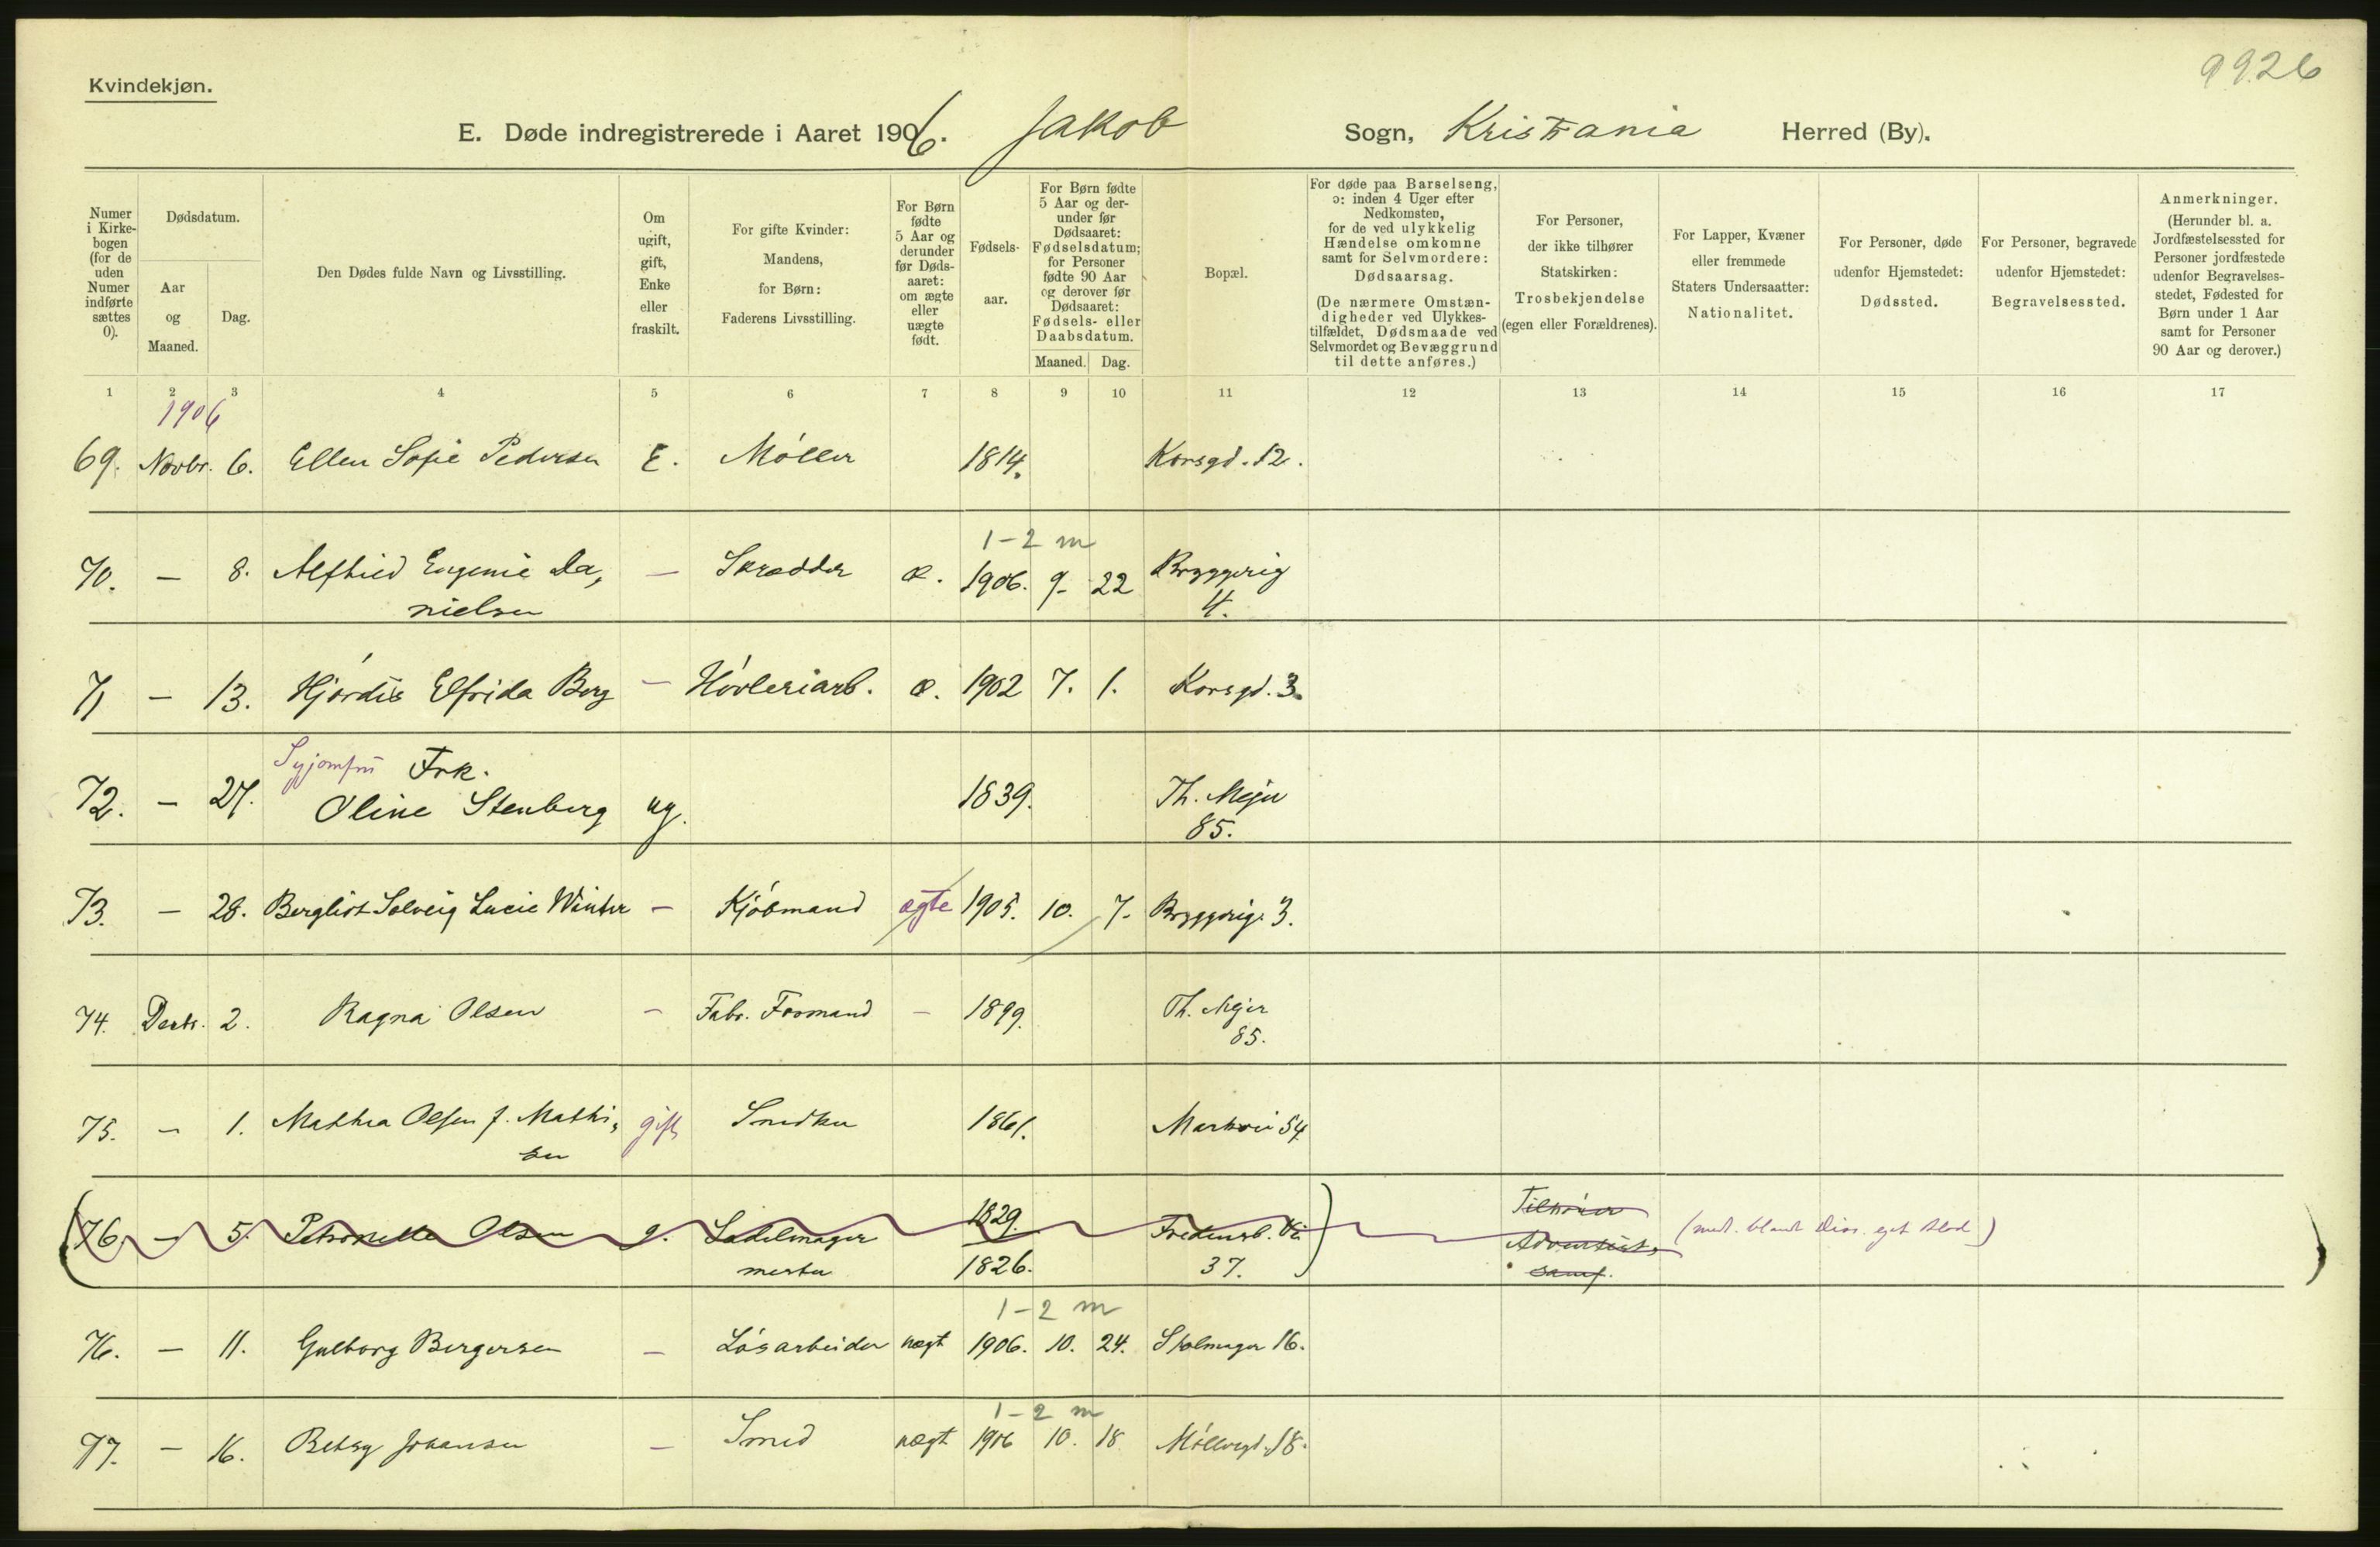 9926
Kvindekjøn.
E. Døde indregistrerede i Aaret 1906. Jakob Sogn, Kristiania Herred (By).
Numer i Kirkebogen (for de uden Numer indførte sættes 0).
Dødsdatum.
Aar og Maaned.
Dag.
Den Dødes fulde Navn og Livsstilling.
Om ugift, gift, Enke eller fraskilt.
For gifte Kvinder: Mandens, for Børn: Faderens Livsstilling.
For Børn fødte 5 Aar og derunder før Dødsaaret: om ægte eller uægte født.
Fødselsaar.
For Børn fødte 5 Aar og derunder før Dødsaaret: Fødselsdatum; for Personer fødte 90 Aar og derover før Dødsaaret: Fødsels- eller Daabsdatum.
Maaned. Dag.
Bopæl.
For døde paa Barselseng, ɔ: inden 4 Uger efter Nedkomsten, for de ved ulykkelig Hændelse omkomne samt for Selvmordere: Dødsaarsag.
(De nærmere Omstændigheder ved Ulykkestilfældet, Dødsmaade ved Selvmordet og Bevæggrund til dette anføres.)
For Personer, der ikke tilhører Statskirken: Trosbekjendelse (egen eller Forældrenes).
For Lapper, Kvæner eller fremmede Staters Undersaatter: Nationalitet.
For Personer, døde udenfor Hjemstedet: Dødssted.
For Personer, begravede udenfor Hjemstedet: Begravelsessted.
Anmerkninger. (Herunder bl. a. Jordfæstelsessted for Personer jordfæstede udenfor Begravelsesstedet, Fødested for Børn under 1 Aar samt for Personer 90 Aar og derover.)
1 2 3 4 5 6 7 8 9 10 11 12 13 14 15 16 17
1906
69. Novbr. 6. Ellen Sofie Pedersen E. Møller 1814. Korsgd. 12.
1-2 m
70. — 8. Alfhild Eugenie Da, — Skrædder æ. 1906. 9- 22 Bryggerig
nielsen 4.
71 — 13. Hjørdis Elfrida Berg — Høvleriarb. æ. 1902 7. 1. Korsgd. 3.
Syjomfru Frk.
72. — 27. Oline Stenberg ug. 1839. Th. Mejer
85.
73. — 28. Bergliot Solveig Lucie Winter — Kjøbmand ægte 1905. 10. 7. Bryggerig. 3.
74. Decbr. 2. Ragna Olsen — Fabr. Formand — 1899. Th. Mejer
85.
75. — 1. Mathea Olsen f. Mathi, gift Snedker 1861. Markvei 54
sen
(76. — 5. Petronelle Olsen g. Sadelmager 1829. Fredensb. Vei)
mester 1826. 37.
Tilhører
Adventist,
samf.
(med. blandt Diss. eget Sted)
1-2 m
76. — 11. Gulborg Bergersen — Løsarbeider uægt 1906. 10. 24. Skolmager 16.
1-2 m
77. — 16. Betsy Johansen — Smed uægt 1906 10. 18 Møllergd. 18.